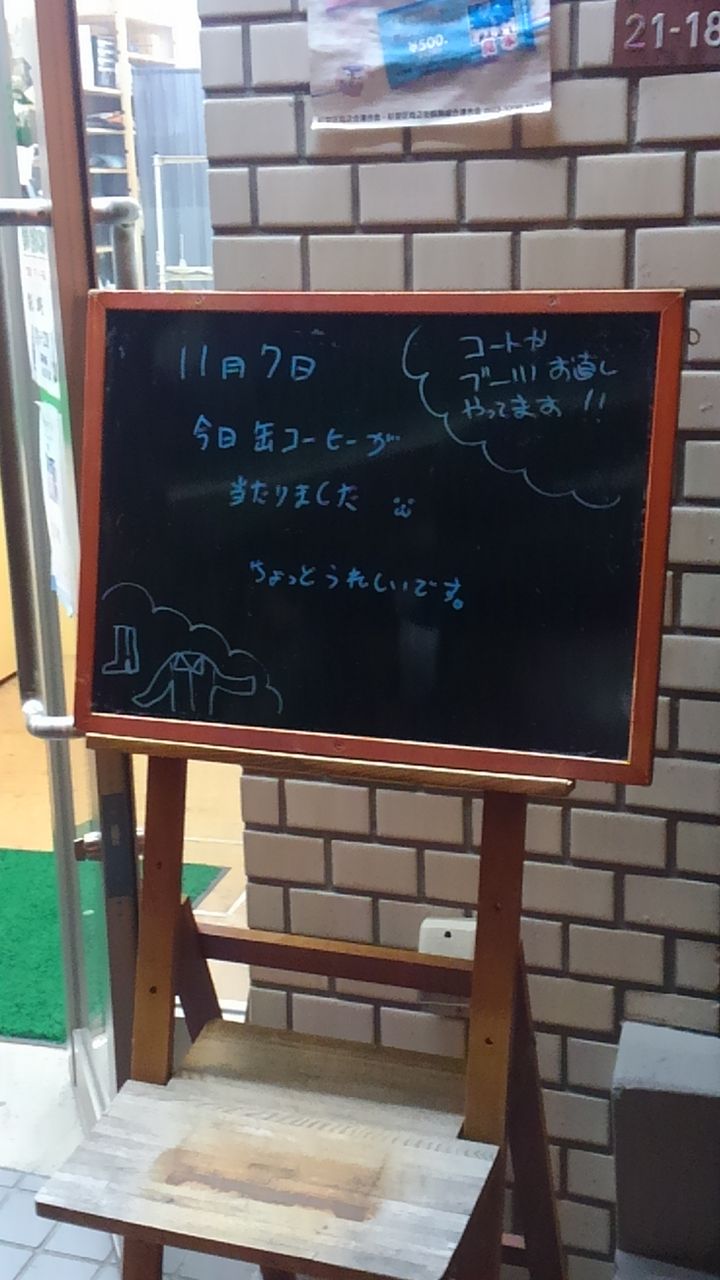 ¥500-
21-18
11月7日
コートや
ブーツお直し
やってます!!
今日缶コーヒーが
当たりました
ちょっとうれしいです。